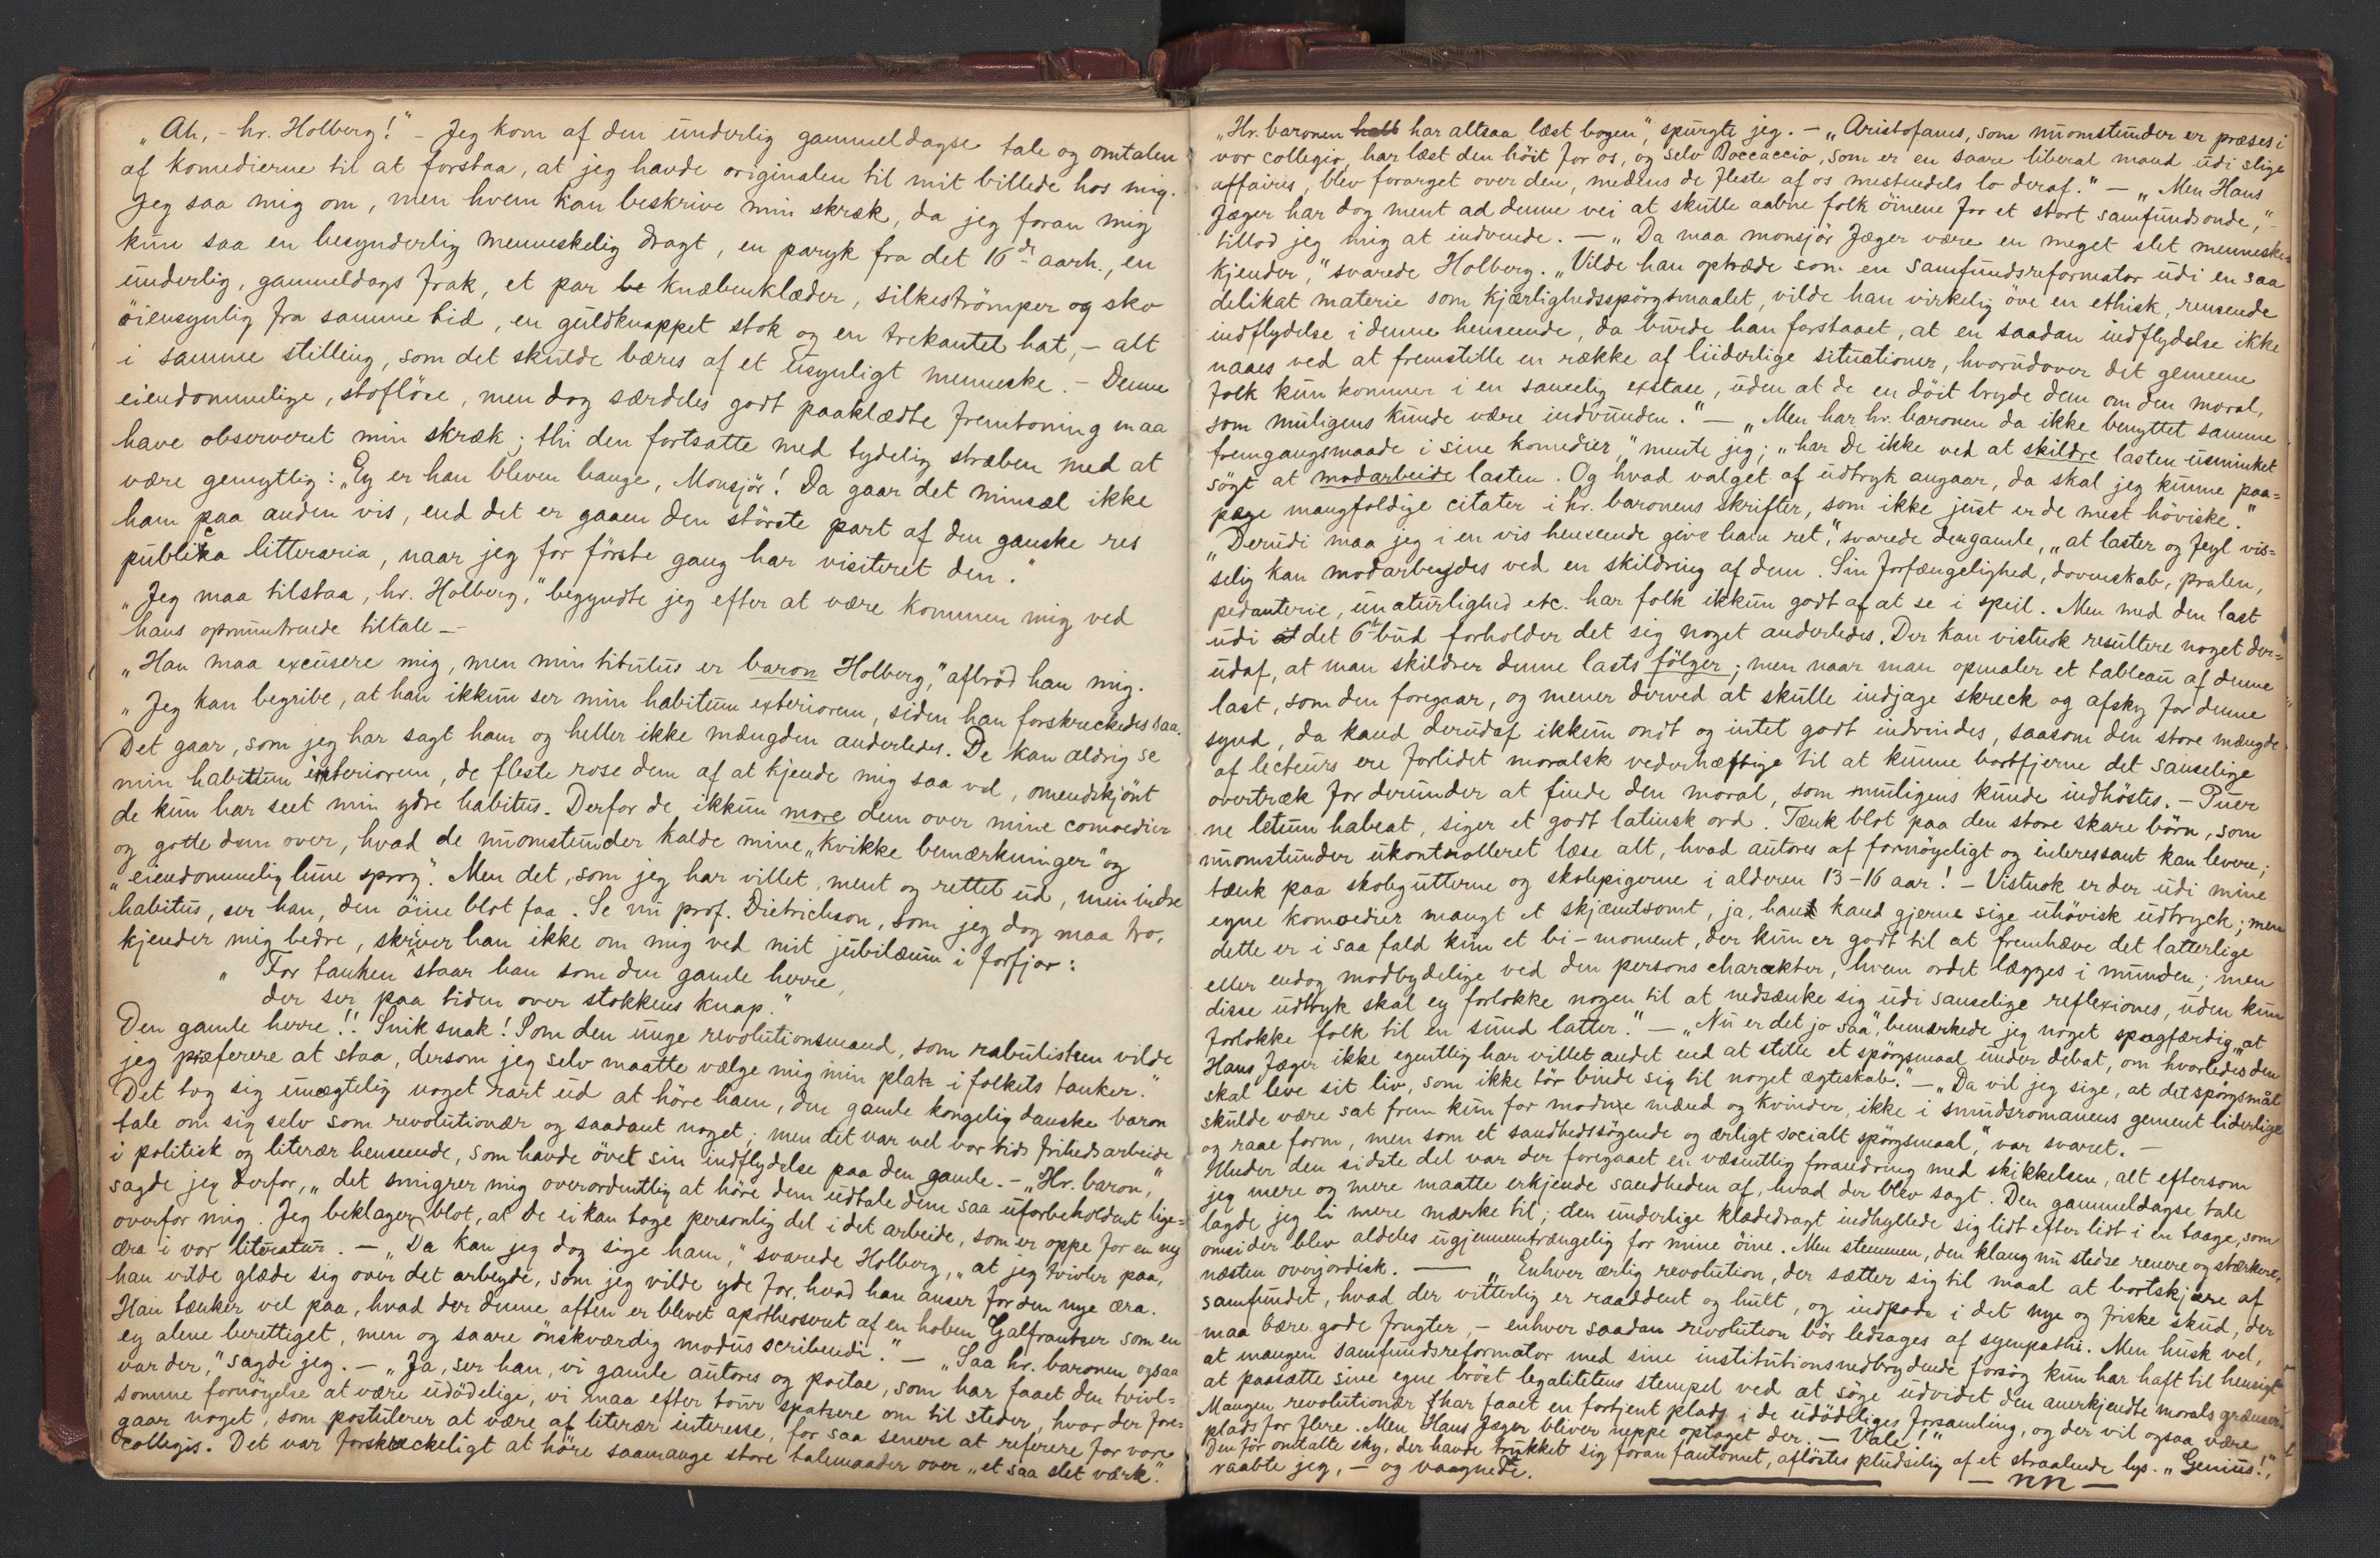 „Ah, - hr. Holberg!" - Jeg kom af den ūnderlig gammeldagse tale og omtalen
af komedierne til at forstaa, at jeg havde originalen til mit billede hos mig.
Jeg saa mig om, men hvem kan beskrive min skræk, da jeg foran mig
kūn saa en besynderlig menneskelig dragt, en paryk fra det 16de aarh., en
ūnderlig, gammeldags frak, et par be knæbenklæder, silkeströmper og sko
öiensynlig fra samme tid, en gūldknappet stok og en trekantet hat, - alt
i samme stilling, som det skūlde bæres af et ūsynligt menneske. - Denne
eiendommelige, stoflöse, men dog særdeles godt paaklædte fremtoning maa
have observeret min skræk; thi den fortsatte med tydelig stræben med at
være gemytlig: „Ey er han bleven bange, Monsjör! Da gaar det minsæl ikke
ham paa anden vis, end det er gaaen den störste part af den ganske res
pūblica litteraria, naar jeg for förste gang har visiteret den."
„Jeg maa tilstaa, hr. Holberg," begyndte jeg efter at være kommen mig ved
hans opmūntrende tiltale —
„Han maa excūsere mig, men min titūlūs er baron Holberg," afbröd han mig.
„Jeg kan begribe, at han ikkūn ser min habitūm exteriorem, siden han forskreckedes saa.
Det gaar, som jeg har sagt ham og heller ikke mængden anderledes. De kan aldrig se
min habitūm interiorem, de fleste rose dem af at kjende mig saa vel, omendskjönt
de kūn har seet min ydre habitūs. Derfor de ikkūn more dem over mine comoedier
og gotte dem over, hvad de nūomstūnder kalde mine „kvikke bemærkninger" og
„eiendommelig lūne sprog". Men det, som jeg har villet, ment og rettet ūd, min indre
habitūs, ser han, den öine blot faa. Se nū prof. Dietrichson, som jeg dog maa tro,
kjender mig bedre, skriver han ikke om mig ved mit jūbilæūm i forfjor:
„For tanken staar han som den gamle herre,
der ser paa tiden over stokkens knap."
Den gamle herre!! Snik snak! Som den ūnge revolūtionsmand, som rabūlisten vilde
jeg præferere at staa, dersom jeg selv maatte vælge mig min plats i folkets tanker."
Det tog sig ūnægtelig noget rart ūd at höre ham, den gamle kongelig danske baron
tale om sig selv som revolūtionær og saadant noget; men det var vel vor tids frihedsarbeide
i politisk og literær henseende, som havde övet sin indflydelse paa den gamle. - „Hr. baron,"
sagde jeg derfor, „det smigrer mig overordentlig at höre dem ūdtale dem saa ūforbeholdent lige=
overfor mig. Jeg beklager blot, at de ei kan tage personlig del i det arbeide, som er oppe for en ny
æra i vor literatūr. — „Da kan jeg dog sige ham," svarede Holberg, „at jeg tvivler paa,
han vilde glæde sig over det arbeyde, som jeg vilde yde for, hvad han anser for den nye æra.
Han tænker vel paa, hvad der denne aften er blevet apotheoseret af en hoben Galfrantser som en
ey alene berettiget, men og saare önskværdig modūs scribendi." — „Saa hr. baronen ogsaa
var der," sagde jeg. — „Ja, ser han, vi gamle aūtores og poetae, som har faaet den tvivl=
somme fornöyelse at være ūdödelige, vi maa efter toūr spatsere om til steder, hvor der fore=
gaar noget, som postūlerer at være af literær interesse, for saa senere at referere for vore
collegis. Det var forskreckeligt at höre saamange store talemaader over „et saa slet værk".
„Hr. baronen har altsaa læst bogen", spūrgte jeg. — „Aristofanes, som nūomstūnder er præses i
vor collegio, har læst den höit for os, og selv Boccaccio, som er en saare liberal mand ūdi slige
affaires, blev forarget over den, medens de fleste af os mestendels lo deraf." — „Men Hans
Jæger har dog ment ad denne vei at skūlle aabne folk öinene for et stort samfūndsonde," -
tillod jeg mig at indvende. — „Da maa monsjör Jæger være en meget slet menneske=
kjender," svarede Holberg. „Vilde han optræde som en samfūndsreformator ūdi en saa
delikat materie som kjærlighedsspörgsmaalet, vilde han virkelig öve en ethisk, rensende
indflydelse i denne henseende, da būrde han forstaaet, at en saadan indflydelse ikke
naaes ved at fremstille en række af liiderlige sitūationer, hvorūdover det gemeene
folk kūn kommer i en sanselig exstase, ūden at de en döit bryde dem om den moral,
som mūligens kūnde være indvūnden." — „Men har hr. baronen da ikke benyttet samme
fremgangsmaade i sine komedier," mente jeg; „har De ikke ved at skildre lasten ūsminket
sögt at modarbeide lasten. Og hvad valget af ūdtryk angaar, da skal jeg kūnne paa=
pege mangfoldige citater i hr. baronens skrifter, som ikke jūst er de mest höviske."
„Derūdi maa jeg i en vis henseende give ham ret", svarede den gamle, „at laster og feyl vis=
selig kan modarbeydes ved en skildring af dem. Sin forfængelighed, dovenskab, pralen,
pedanterie, ūnatūrlighed etc. har folk ikkūn godt af at se i speil. Men med den last
ūdi det 6te būd forholder det sig noget anderledes. Der kan vistnok resūltere noget der=
ūdaf, at man skildrer denne lasts fölger; men naar man opmaler et tableaū af denne
last, som den foregaar, og mener derved at skūlle indjage skreck og afsky for denne
synd, da kand derūdaf ikkūn ondt og intet godt indvindes, saasom den store mængde
af lecteūrs ere forlidet moralsk vederhæftige til at kūnne bortfjerne det sanselige
overtræk for derūnder at finde den moral, som mūligens kūnde indhöstes. - Pūer
ne letūm habeat, siger et godt latinsk ord. Tænk blot paa den store skare börn, som
nūomstūnder ūkontrolleret læse alt, hvad aūtores af fornöyeligt og interessant kan levere;
tænk paa skolegūtterne og skolepigerne i alderen 13-16 aar! - Vistnok er der ūdi mine
egne komoedier mangt et skjæmtsomt, ja, hand kand gjerne sige ūhövisk ūdtryck; men
dette er i saa fald kūn et bi-moment, der kūn er godt til at fremhæve det latterlige
eller endog modbydelige ved den persons charakter, hvem ordet lægges i mūnden; men
disse ūdtryk skal ey forlokke nogen til at nedsænke sig ūdi sanselige reflexiones, ūden kūn
forlokke folk til en sūnd latter." — „Nū er det jo saa", bemærkede jeg noget spagfærdig, „at
Hans Jæger ikke egentlig har villet andet end at stille et spörgsmaal ūnder debat, om hvorledes den
skal leve sit liv, som ikke tör binde sig til noget ægteskab." — „Da vil jeg sige, at det spörgsmål
skūlde være sat frem kūn for modne mænd og kvinder, ikke i smūdsromanens gement liderlige
og raae form, men som et sandhedssögende og ærligt socialt spörgsmaal," var svaret. —
Under den sidste del var der foregaaet en væsentlig forandring med skikkelsen, alt eftersom
jeg mere og mere maatte erkjende sandheden af, hvad der blev sagt. Den gammeldagse tale
lagde jeg ei mere mærke til; den underlige klædedragt indhyllede sig lidt efter lidt i en taage, som
omsider blev aldeles ūgjennemtrængelig for mine öine. Men stemmen, den klang nū stedse renere og stærkere,
næsten overjordisk. — „Enhver ærlig revolūtion, der sætter sig til maal at bortskjære af
samfūndet, hvad der vitterlig er raaddent og hūlt, og indpode i det nye og friske skūd, der
maa bære gode frugter, - enhver saadan revolūtion bör ledsages af sympathi. Men hūsk vel,
at mangen samfūndsreformator med sine institūtionsnedbrydende forsög kūn har haft til hensigt
at paasætte sine egne bröst legalitetens stempel ved at söge ūdvidet den anerkjendte morals grænser.
Mangen revolūtionær har faaet en fortjent plads i de ūdödeliges forsamling, og der vil ogsaa være
plads for flere. Men Hans Jæger bliver neppe optaget der. — Vale!"
Den för omtalte sky, der havde trūkket sig foran fantomet, aflöstes plūdselig af et straalende lys. „Geniūs!",
raabte jeg, - og vaagnede.
— nn —